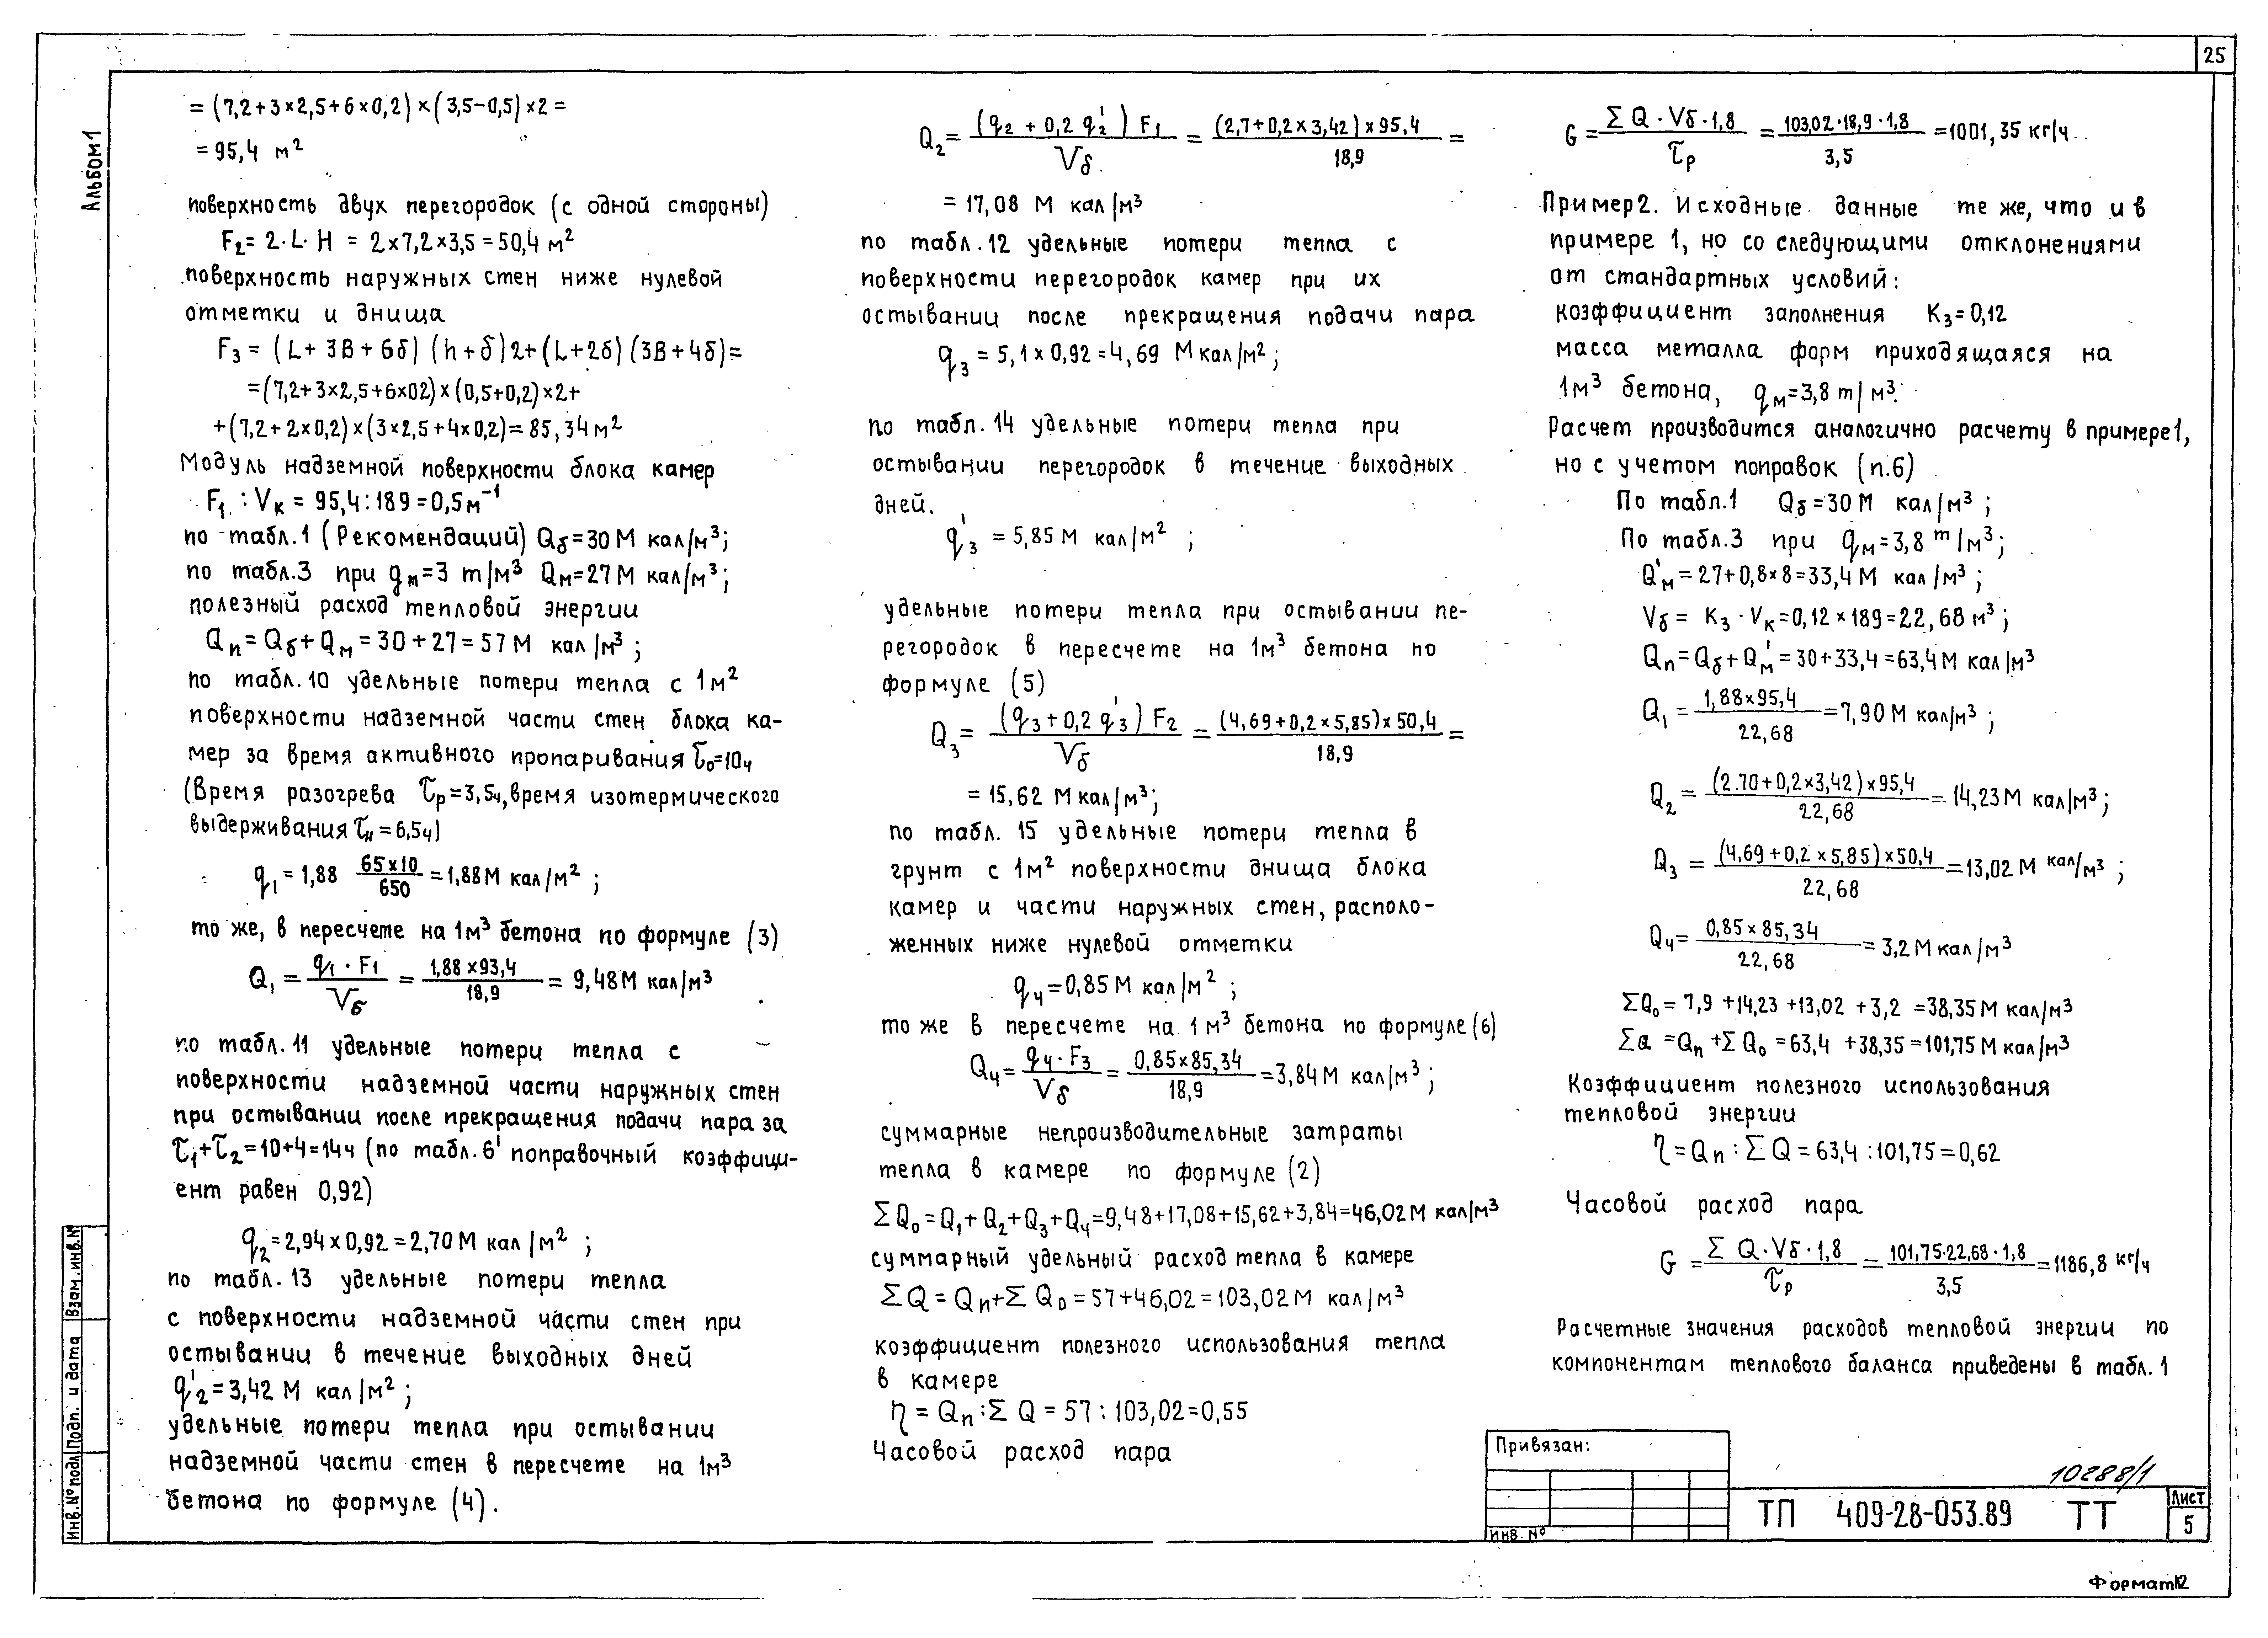 25
Альбом 1
= (7,2+3×2,5+6×0,2)×(3,5-0,5)×2=
= 95,4 м²
поверхность двух перегородок (с одной стороны)
F₂= 2·L·H = 2×7,2×3,5=50,4 м²
поверхность наружных стен ниже нулевой
отметки и днища
F₃ = (L+ 3B+6δ) (h+δ)2+(L+2δ)(3B+4δ)=
=(7,2+3×2,5+6×02)×(0,5+0,2)×2+
+(7,2+2×0,2)×(3×2,5+4×0,2)=85,34м²
Модуль надземной поверхности блока камер
F₁ : Vк = 95,4:189=0,5м⁻¹
по табл.1 (Рекомендаций) Qб=30 М кал/м³;
по табл.3 при qм=3 т/м³ Qм=27М кал/м³;
полезный расход тепловой энергии
Qп=Qб+Qм=30+27=57М кал/м³;
по табл.10 удельные потери тепла с 1м²
поверхности надземной части стен блока ка-
мер за время активного пропаривания τ₀=10ч
(Время разогрева τр=3,5ч, время изотермического
выдерживания τи=6,5ч)
q₁=1,88 65×10/650=1,88М кал/м²;
то же, в пересчете на 1м³ бетона по формуле (3)
Q₁ = q₁·F₁/Vб = 1,88×93,4/18,9 = 9,48М кал/м³
по табл.11 удельные потери тепла с
поверхности надземной части наружных стен
при остывании после прекращения подачи пара за
τ₁+τ₂=10+4=14ч (по табл.6' поправочный коэффици-
ент равен 0,92)
q₂=2,94×0,92=2,70М кал/м²;
по табл.13 удельные потери тепла
с поверхности надземной части стен при
остывании в течение выходных дней
q'₂=3,42 М кал/м²;
удельные потери тепла при остывании
надземной части стен в пересчете на 1м³
бетона по формуле (4).
Q₂= (q₂+0,2 q'₂) F₁/Vб = (2,7+0,2×3,42)×95,4/18,9 =
= 17,08 М кал/м³
по табл.12 удельные потери тепла с
поверхности перегородок камер при их
остывании после прекращения подачи пара
q₃=5,1×0,92=4,69 Мкал/м²;
по табл.14 удельные потери тепла при
остывании перегородок в течение выходных
дней.
q'₃ = 5,85М кал/м²;
удельные потери тепла при остывании пе-
регородок в пересчете на 1м³ бетона по
формуле (5)
Q₃= (q₃+0,2 q'₃) F₂/Vб = (4,69+0,2×5,85)×50,4/18,9 =
= 15,62 М кал/м³;
по табл. 15 удельные потери тепла в
грунт с 1м² поверхности днища блока
камер и части наружных стен, располо-
женных ниже нулевой отметки
q₄=0,85М кал/м²;
то же в пересчете на 1м³ бетона по формуле (6)
Q₄= q₄·F₃/Vб = 0,85×85,34/18,9 =3,84М кал/м³;
суммарные непроизводительные затраты
тепла в камере по формуле (2)
ΣQ₀=Q₁+Q₂+Q₃+Q₄=9,48+17,08+15,62+3,84=46,02М кал/м³
суммарный удельный расход тепла в камере
ΣQ=Qп+ΣQ₀=57+46,02=103,02М кал/м³
коэффициент полезного использования тепла
в камере
η=Qп:ΣQ=57:103,02=0,55
Часовой расход пара
G= ΣQ·Vб·1,8/τр = 103,02·18,9·1,8/3,5 =1001,35 кг/ч
Пример 2. Исходные данные те же, что и в
примере 1, но со следующими отклонениями
от стандартных условий:
коэффициент заполнения Kз=0,12
масса металла форм приходящаяся на
1м³ бетона, qм=3,8 т/м³.
Расчет производится аналогично расчету в примере 1,
но с учетом поправок (п.6)
По табл.1 Qб=30М кал/м³;
По табл.3 при qм=3,8 т/м³;
Q'м=27+0,8×8=33,4М кал/м³;
Vб= Kз·Vк=0,12×189=22,68 м³;
Qп=Qб+Q'м=30+33,4=63,4М кал/м³
Q₁= 1,88×95,4/22,68 =7,90М кал/м³;
Q₂= (2.70+0,2×3,42)×95,4/22,68 = 14,23М кал/м³;
Q₃ = (4,69+0,2×5,85)×50,4/22,68 =13,02М кал/м³;
Q₄= 0,85×85,34/22,68 = 3,2М кал/м³
ΣQ₀= 7,9+14,23+13,02+3,2=38,35М кал/м³
ΣQ =Qп+ΣQ₀=63,4+38,35=101,75М кал/м³
Коэффициент полезного использования
тепловой энергии
η=Qп:ΣQ=63,4:101,75=0,62
Часовой расход пара
G = ΣQ·Vб·1,8/τр = 101,75·22,68·1,8/3,5 =1186,8 кг/ч
Расчетные значения расходов тепловой энергии по
компонентам теплового баланса приведены в табл.1
Привязан:
Инв. №
10288/1
ТП 409-28-053.89 ТТ
Лист
5
Формат12
Взам.инв.№
Подп. и дата
Инв.№ подл